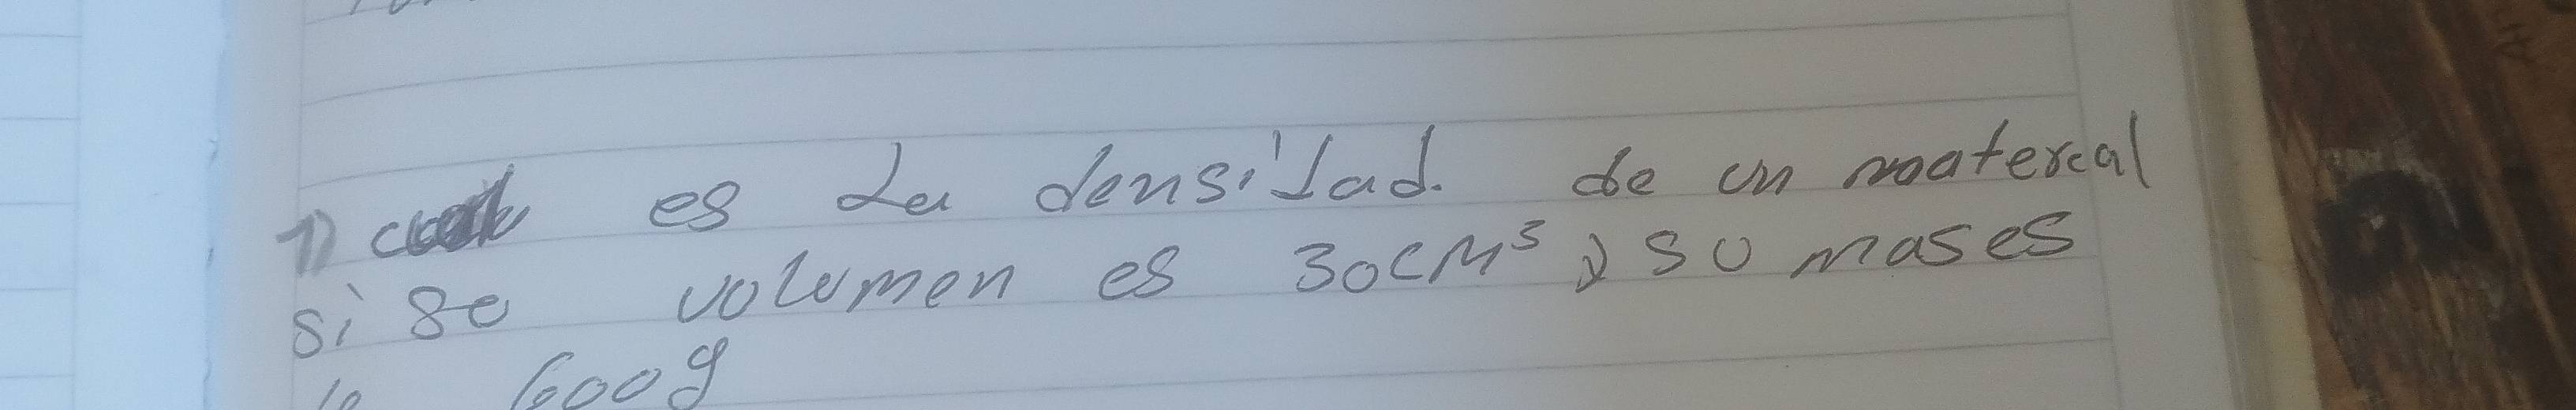 1) es La densidad. de un matereal
si se volumen es 30cm³ y su mases
600g